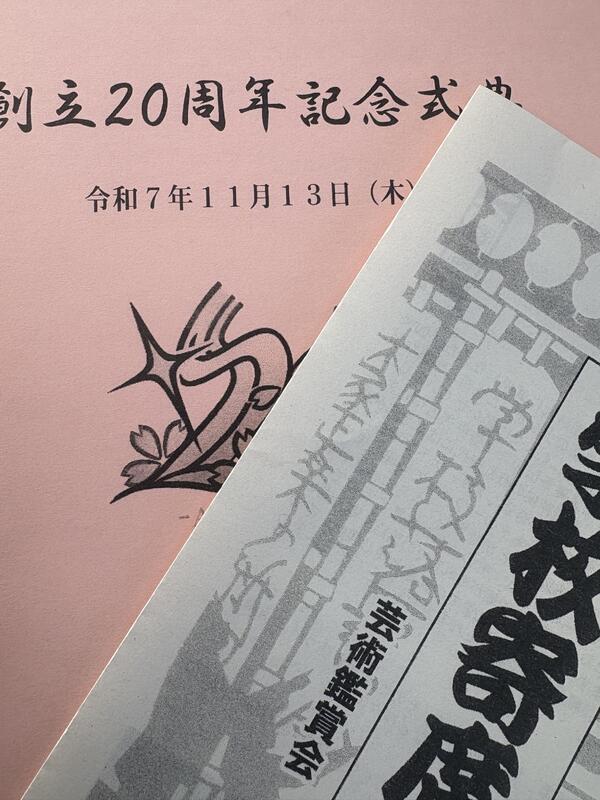 創立20周年記念式典
令和７年１１月１３日（木）
学校寄席
芸術鑑賞会